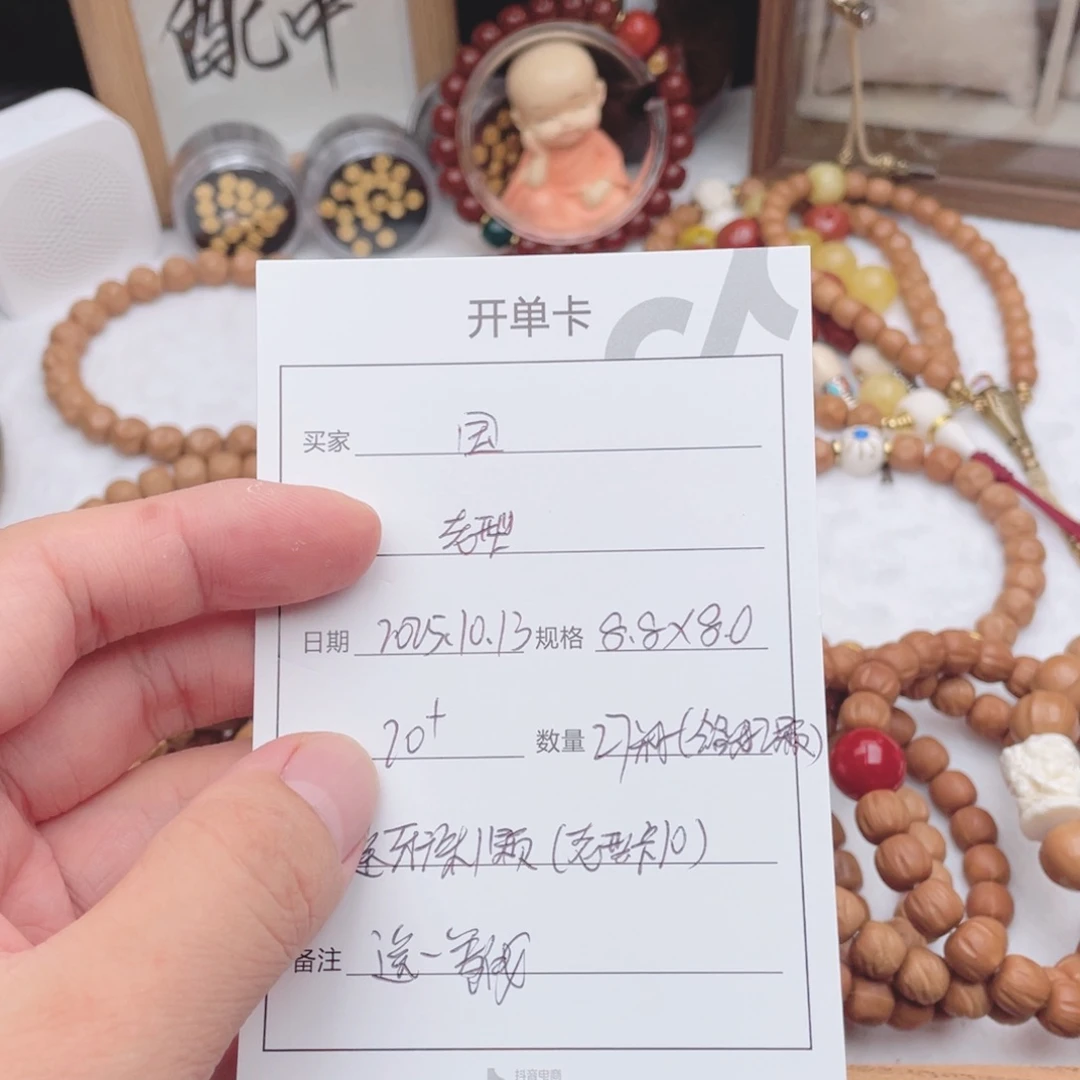 配中
开单卡
买家 国
老型
日期 2025.10.13 规格 8.8X8.0
20+ 数量 27
送牙雕1颗 (老型卡10)
备注 送一
抖音电商